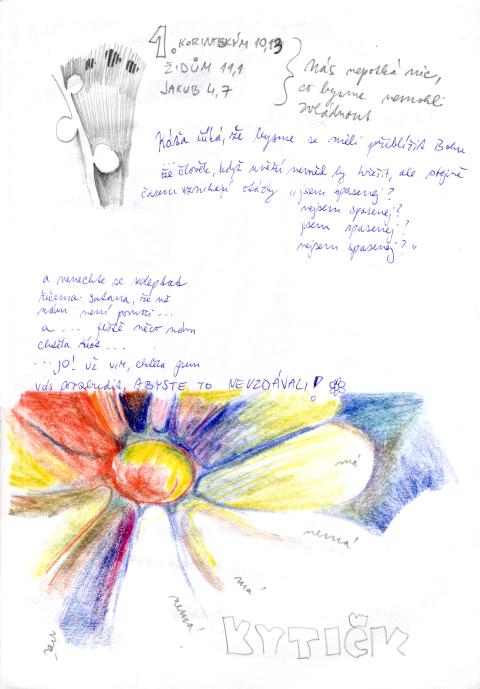 1. KORINTSKÝM 10,13
ŽIDŮM 11,1
JAKUB 4,7
Nás nepotká nic,
co bysme nemohli
zvládnout
Káťa říká, že bysme se měli přiblížit Bohu
... že člověk, když uvěří neměl by hřešit, ale stejně
časem vznikají otázky "jsem spasenej?
nejsem spasenej?
jsem spasenej?
nejsem spasenej?"
a nenechte se zdeptat
řečma satana, že už
nám není pomoci ...
a ... ještě něco nám
chtěla říct ...
... JO! Už vim, chtěla jsem
vás povzbudit, ABYSTE TO NEVZDÁVALI!
má
nemá
má
nemá
KYTIČK